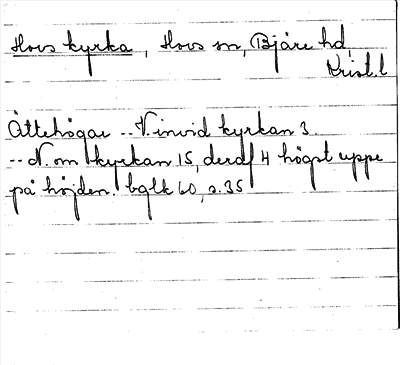 Hovs kyrka, Hovs sn, Bjäre hd,
Krist. l
Ättehögar -- V. invid kyrkan 3.
-- N. om kyrkan 15, deraf 4 högst uppe
på höjden. bglk 60, s. 35